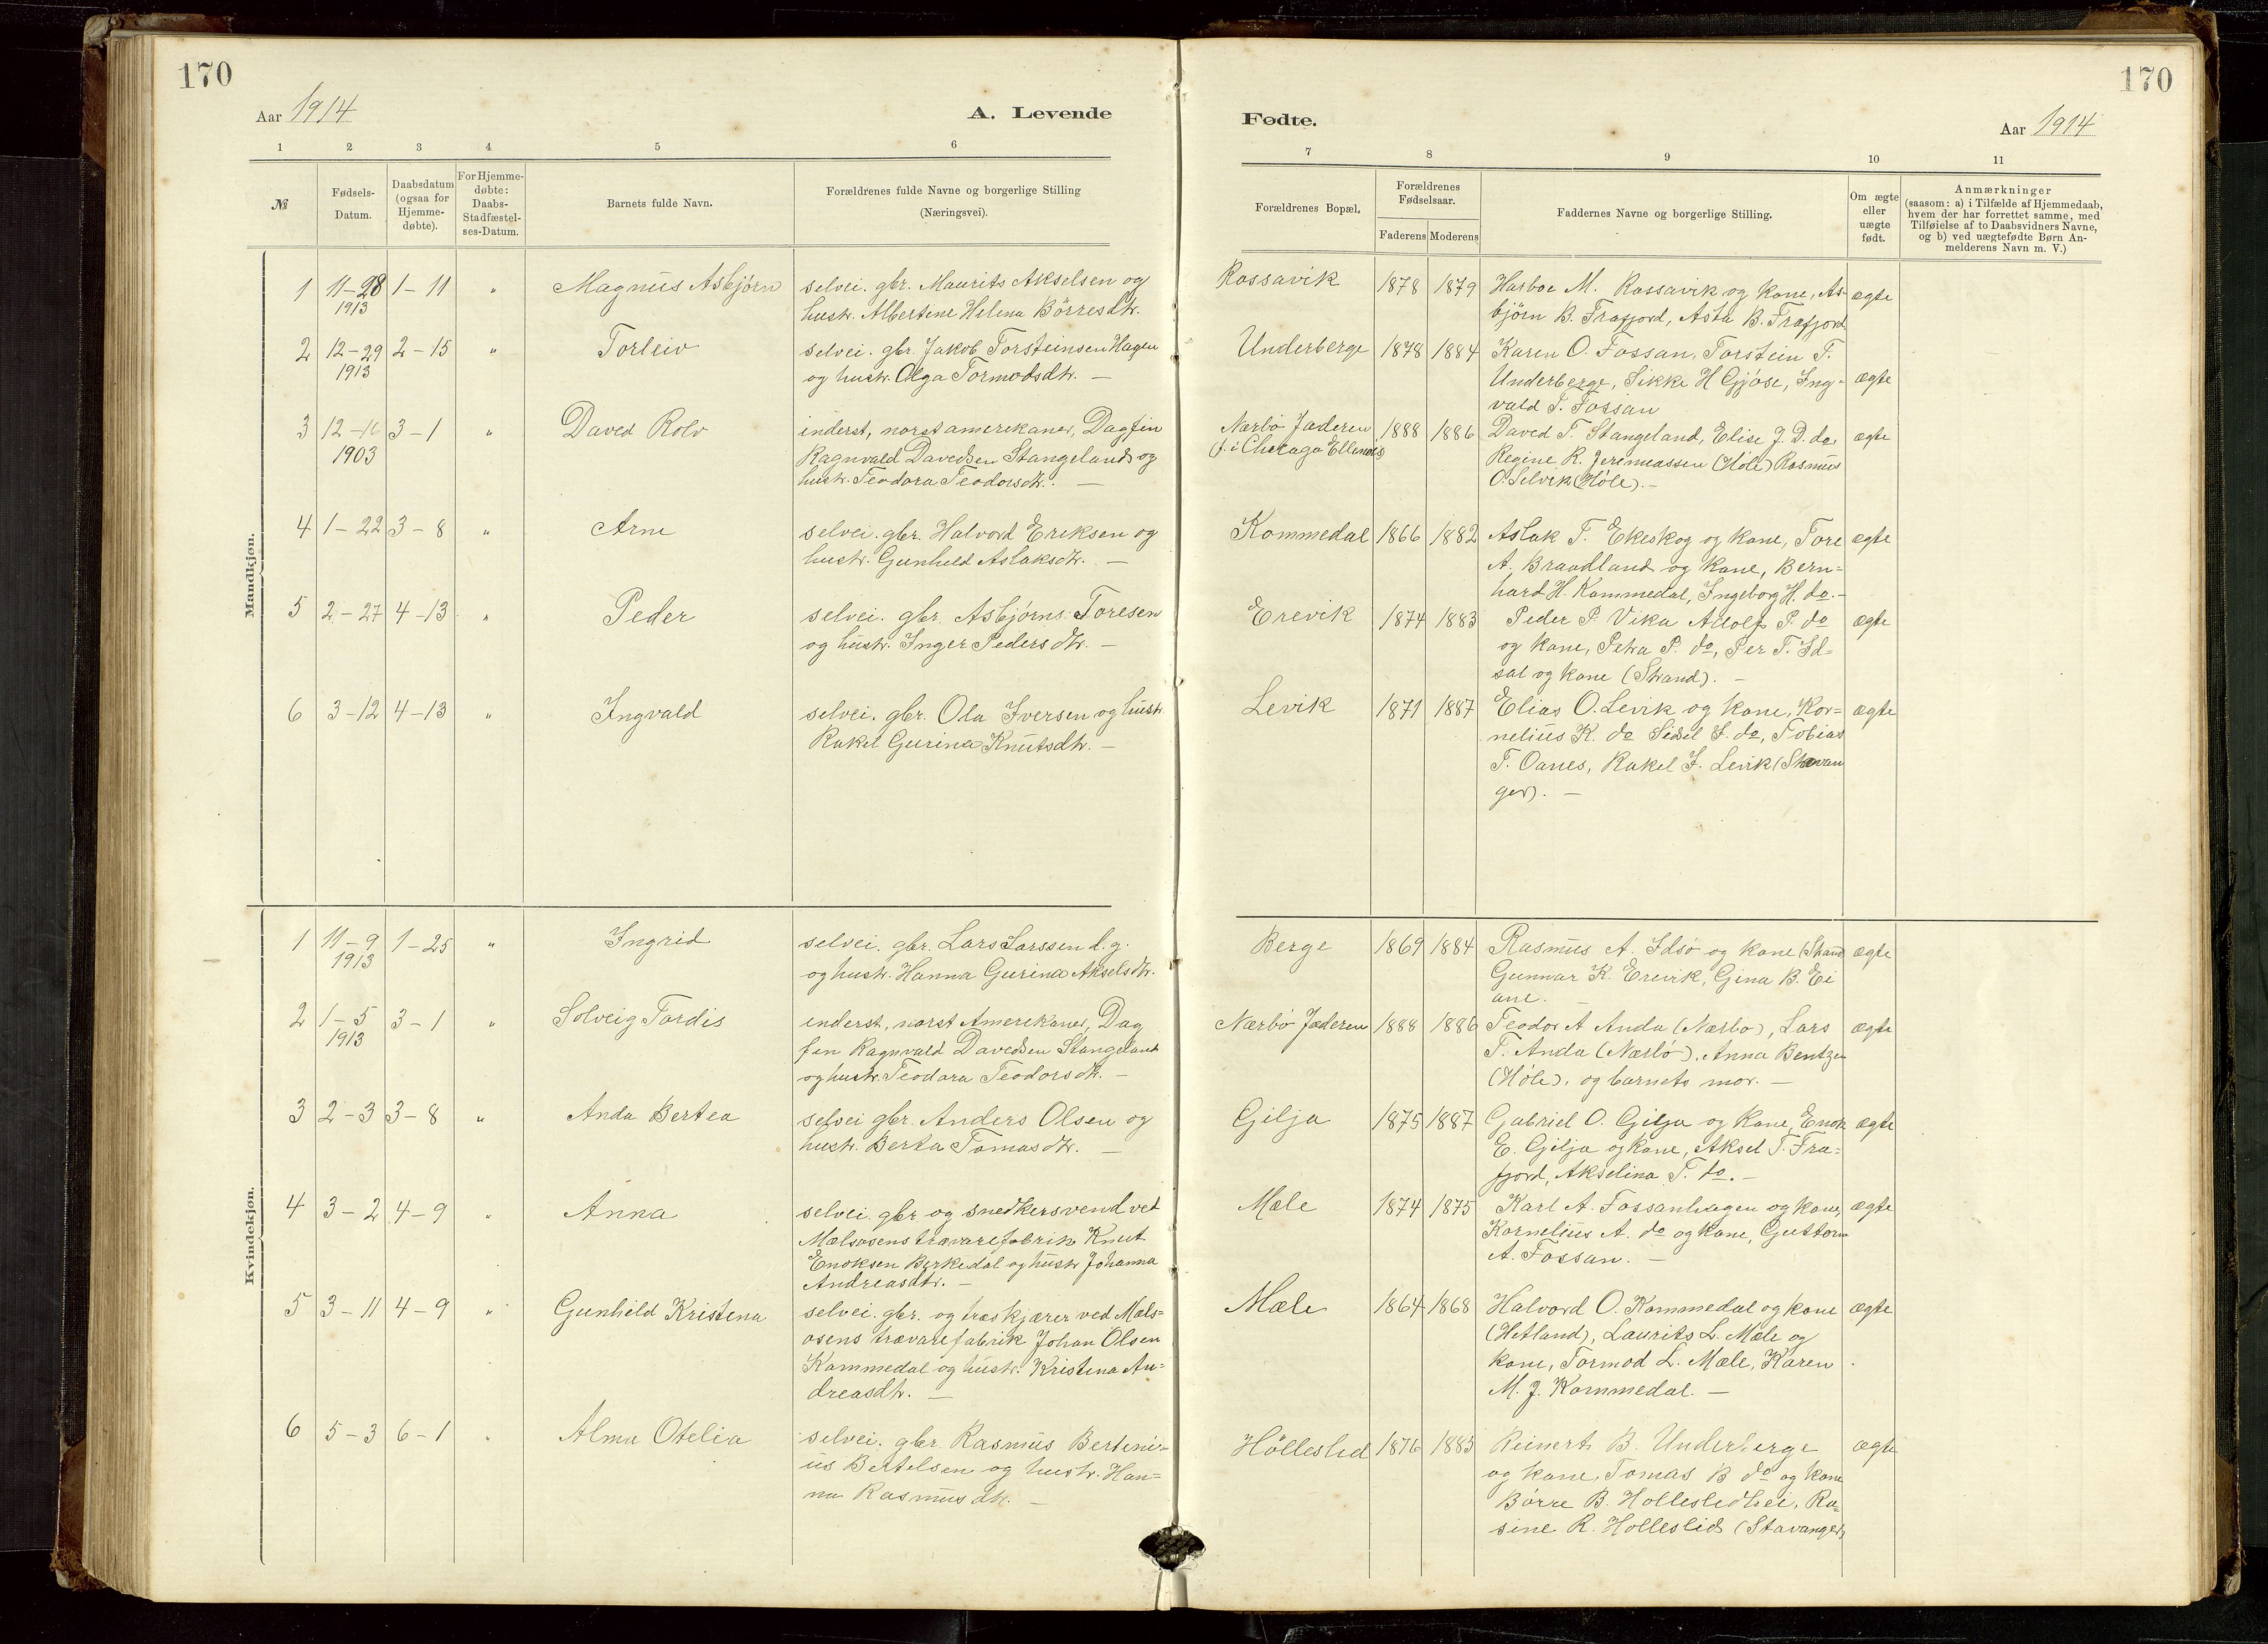 170
Aar 1914
A. Levende
1 2 3 4 5 6
№
Fødsels-
Datum.
Daabsdatum
(ogsaa for
Hjemme-
døbte).
For Hjemme-
døbte:
Daabs-
Stadfæstel-
ses-Datum.
Barnets fulde Navn.
Forældrenes fulde Navne og borgerlige Stilling
(Næringsvei).
Mandkjøn.
1 11-28 1-11 " Magnus Asbjørn selvei. gbr. Maurits Akselsen og
1913 hustr. Albertine Helena Börresdtr.
2 12-29 2-15 " Torleiv selvei. gbr. Jakob Torsteinsen Hagen
1913 og hustr. Olga Tormodsdtr. —
3 12-16 3-1 " Daved Rolv inderst, norst amerekaner, Dagfin
1903 Ragnvald Davedsen Stangeland og
hustr. Teodora Teodorsdtr. —
4 1-22 3-8 " Arne selvei. gbr. Halvord Eriksen og
hustr. Gunheld Aslaksdtr. —
5 2-27 4-13 " Peder selvei. gbr. Asbjørns Toresen
og hustr. Inger Pedersdtr. —
6 3-12 4-13 " Ingvald selvei. gbr. Ola Iversen og hustr.
Rakel Gurina Knutsdtr. —
Kvindekjøn.
1 11-9 1-25 " Ingrid selvei. gbr. Lars Larssen d.g.
1913 og hustr. Hanna Gurina Akselsdtr.
2 1-5 3-1 " Solveig Tordis enderst, norst Amerekaner, Dag
1913 fen Ragnvald Davedsen Stangeland
og hustr. Teodora Teodorsdtr. —
3 2-3 3-8 " Anda Bertea selvei gbr. Anders Olsen og
hustr. Berta Tomasdtr. —
4 3-2 4-9 " Anna selvei. gbr og snedkersvend ved
Mælsosens trævarefabrik Knut
Enoksen Byrkedal og hustr Johanna
Andreasdtr. —
5 3-11 4-9 " Gunheld Kristena selvei. gbr. og træskjærer ved Mæls-
osens trævarefabrik Johan Olsen
Kommedal og hustr. Kristena An-
dreasdtr. —
6 5-3 6-1 " Alma Otelia selvei. gbr. Rasmus Berteni-
us Bertelsen og hustr. Han-
na Rasmusdtr. —
170
Fødte.
Aar 1914
7 8 9 10 11
Forældrenes Bopæl.
Forældrenes
Fødselsaar.
Faderens Moderens
Faddernes Navne og borgerlige Stilling.
Om ægte
eller
uægte
født.
Anmærkninger
(saasom: a) i Tilfælde af Hjemmedaab,
hvem der har forrettet samme, med
Tilføielse af to Daabsvidners Navne,
og b) ved uægtefødte Børn An-
melderens Navn m. V.)
Rossavik 1878 1879 Harboe M. Rossavik og kone, As- ægte
björn B. Frafjord, Asta B. Frafjord
Underberge 1878 1884 Karen O. Fossan, Torstein T.
Underberge, Sikke H Gjöse, Ing- ægte
vald T. Fossan
Nærbö Jæderen 1888 1886 Daved T. Stangeland, Elise J. D. do, ægte
(f. i Chicago Ellenois) Regine R. Jeremeassen (Höle) Rasmus
O. Selvik (Höle). —
Kommedal 1866 1882 Aslak T. Ekeskog og kone, Tore ægte
A. Braadland og kone, Bern-
hard H. Kommedal, Ingeborg H. do. —
Erevik 1874 1883 Peder P. Vika Adolf P. do ægte
og kone, Petra P. do, Per T. Id-
sal og kone (Strand). —
Levik 1871 1887 Elias O. Levik og kone, Kor- ægte
nelius K. do Sidsel I. do, Tobias
T. Oanes, Rakel I. Levik (Stavan
ger). —
Berge 1869 1884 Rasmus A. Idsö og kone (Strand ægte
Gunnar K. Erevik, Gina B. Ei
ane.
Nærbö Jæderen 1888 1886 Teodor A Anda (Nærbö), Lars ægte
T. Anda (Nærbö), Anna Bentzen
(Höle), og barnets mor. —
Gilja 1875 1887 Gabriel O. Gilja og kone, Enok ægte
E. Gilja og kone, Aksel T. Fra-
fjord, Akselina T. do. —
Mæle 1874 1875 Karl A. Fossanhagen og kone, ægte
Kornelius A. do og kone, Guttorm
A. Fossan. —
Mæle 1864 1868 Halvord O. Kommedal og kone ægte
(Hetland), Laurits L. Mæle og
kone, Tormod L. Mæle, Karen
M. J. Kommedal. —
Hölleslid 1876 1885 Reinert B. Underberge ægte
og kone, Tomas B do og kone
Börre B. Holleslidhei, Ra-
sine R. Holleslid (Stavanger)